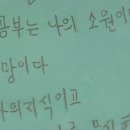 공부는 나의 소원이
망이다
나의지식이고